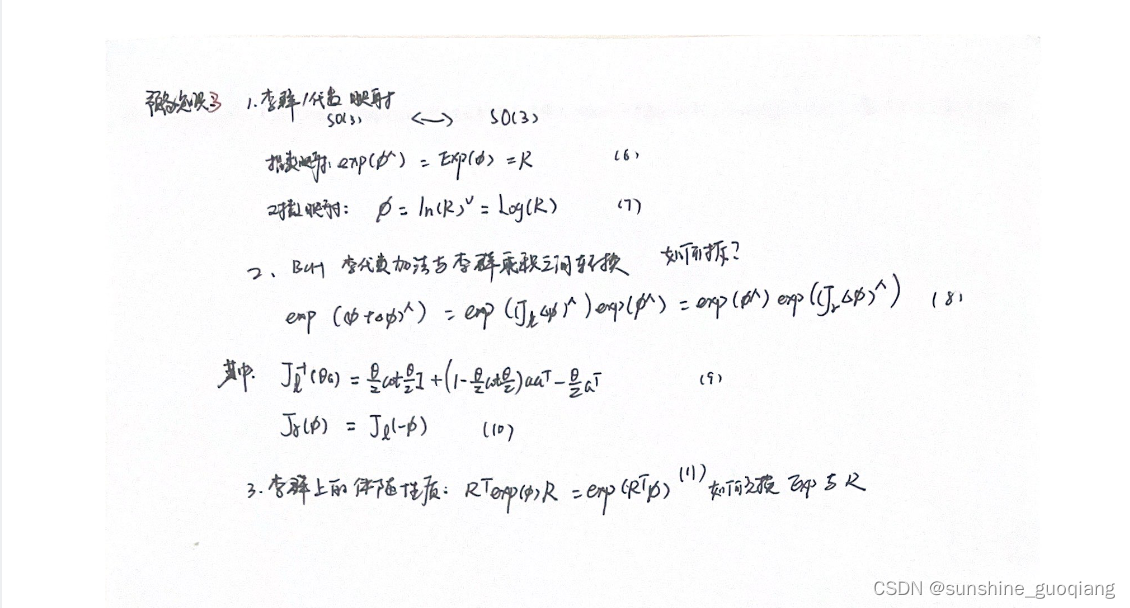 预备知识3 1.李群/代数 映射
SO(3) ⟷ SO(3)
指数映射: exp(φ^) = Exp(φ) = R (6)
对数映射: φ = ln(R)^∨ = Log(R) (7)
2、BCH 李代数加法与李群乘积之间转换 如何拆?
exp (φ+Δφ)^) = exp ((J_lΔφ)^) exp(φ^) = exp(φ^) exp((J_rΔφ)^) (8)
其中. J_l^-1(θa) = θ/2 cot θ/2 I + (1-θ/2 cot θ/2)aa^T - θ/2 a^T (9)
J_r(φ) = J_l(-φ) (10)
3.李群上的伴随性质: R^T exp(φ)R = exp(R^Tφ) (11) 如何交换 Exp 与 R
CSDN @sunshine_guoqiang